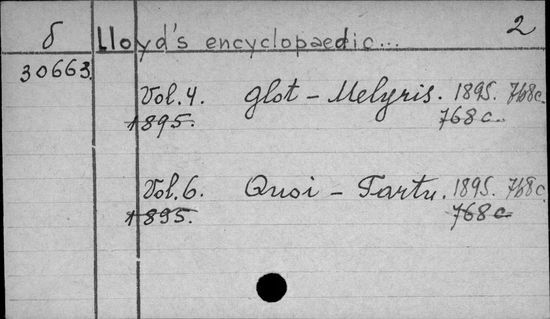 2
б Lloyd's encyclopaedic...
30663.
Vol. 4. Glot - Melyris. 1895. 768c.
1895. 768 c.
Vol. 6. Quoi - Tartu. 1895. 768c.
1895. 768 c